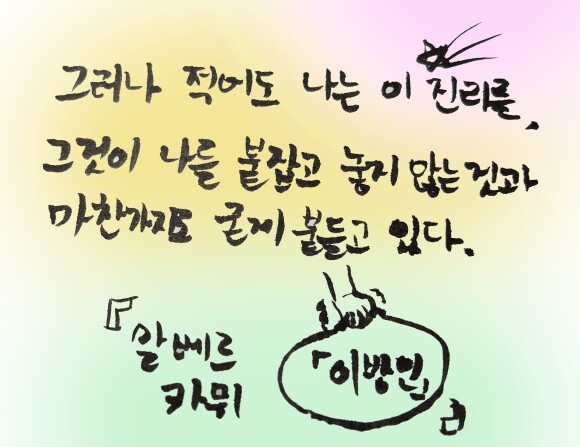 그러나 적어도 나는 이 진리를,
그것이 나를 붙잡고 놓지 않는 것과
마찬가지로 굳게 붙들고 있다.
『알베르
카뮈
「이방인」』